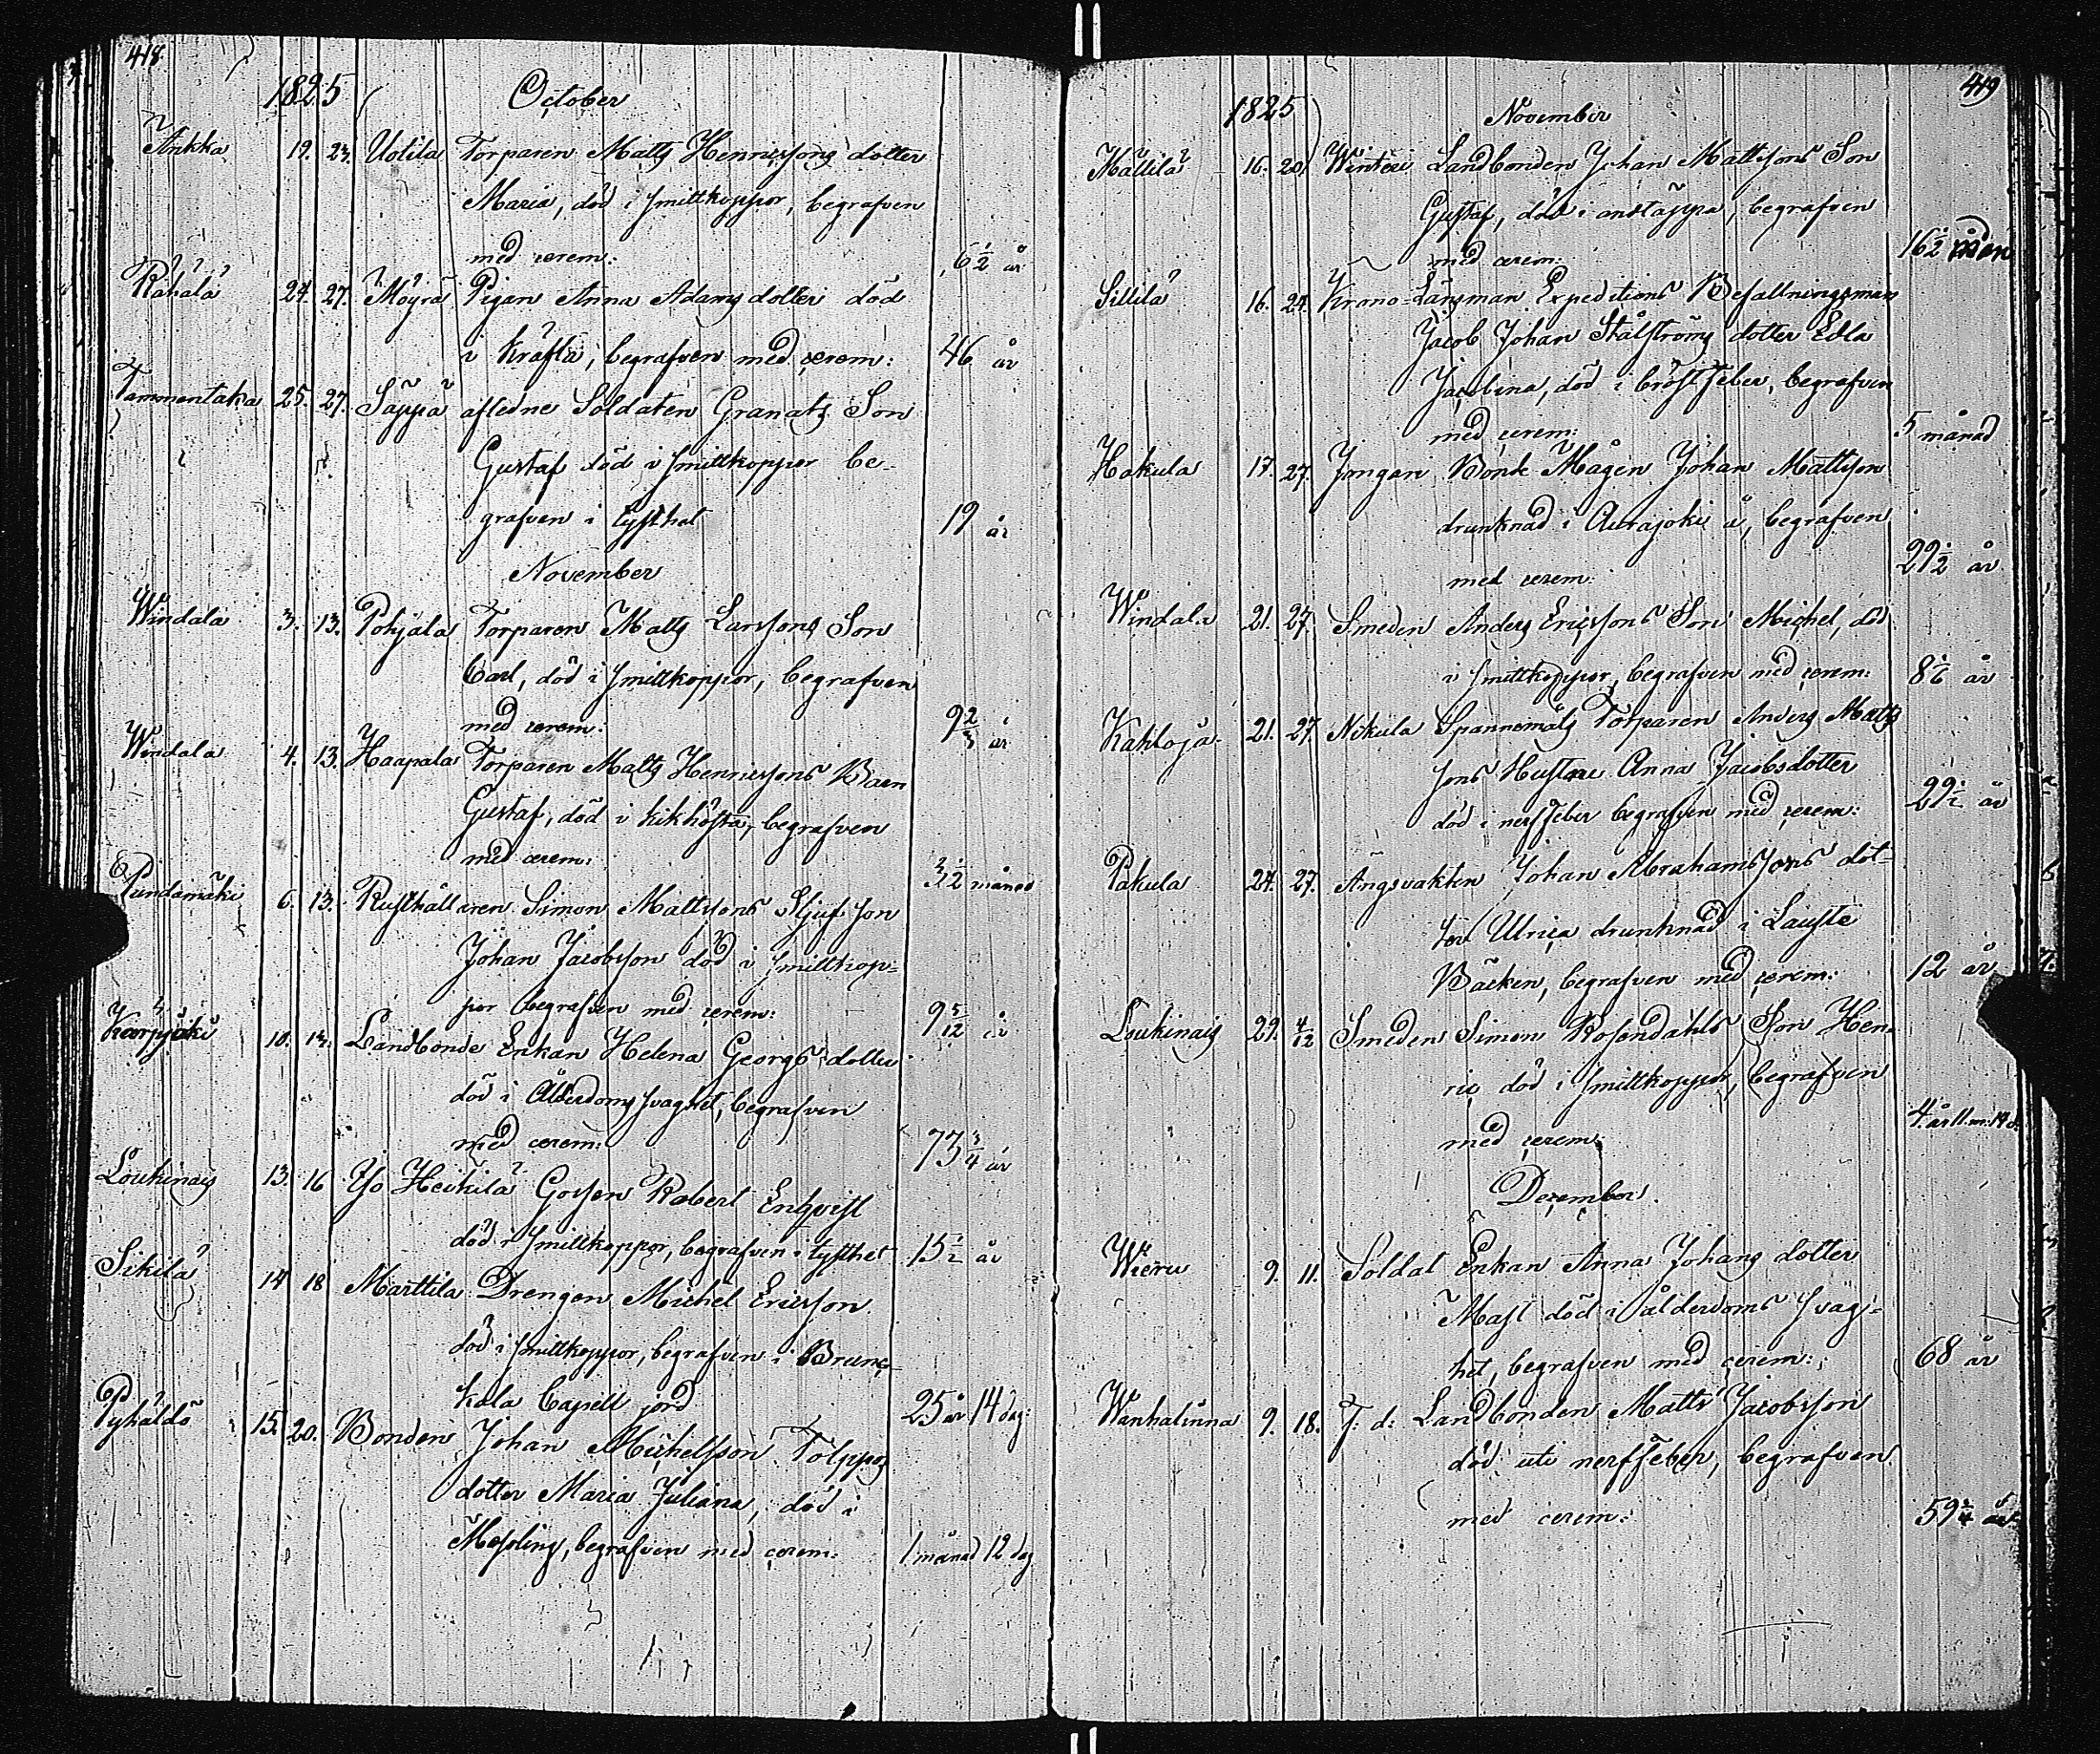 418
1825 October
Ankka 19. 23. Uotila Torparen Matts Henricssons dotter
Maria, död i smittkoppor, begrafven
med cerem: 6 1/2 år
Rähälä 24. 27. Möyrä Pigan Anna Adams dotter död
i Kräfta, begrafven med cerem: 46 år
Tammentaka 25. 27. Säppä afledne Soldaten Granats Son
Gustaf död i smittkoppor be-
grafven i tysthet 19 år
November
Windala 3. 13. Pohjala Torparen Matts Larssons Son
Carl, död i smittkoppor, begrafven
med cerem: 9 2/3 år
Windala 4. 13. Haapala Torparen Matts Henricssons Barn
Gustaf, död i kikhosta, begrafven
med cerem: 3 1/2 månad
Pundamäki 6. 13. Rusthållaren Simon Mattssons Stjufson
Johan Jacobsson död i smittkop-
por begrafven med cerem: 9 5/12 år
Karpjoki 10. 13. Landbonde Enkan Helena Georgs dotter
död i Ålderdoms svaghet, begrafven
med cerem: 73 3/4 år
Loukinais 13. 16 Yso Heikilä Gossen Robert Enqvist
död i smittkoppor, begrafven i tysthet 13 1/2 år
Sikilä 14 18 Marttila Drengen Michel Ericsson
död i smittkoppor, begrafven i Brun-
kala Capell jord 25 år 14 dag:
Pyhäldö 15. 20. Bonden Johan Michelsson Tolppos
dotter Maria Juliana, död i
Messling, begrafven med cerem: 1 månad 12 dag
419
1825 November
Mällilä 16. 20 Winteri Landbonden Johan Mattssons Son
Gustaf, död i andtäppa, begrafven
med cerem: 16 1/2 åder
Sillilä 16. 24. Krono-Länsman Expeditions Befallningsman
Jacob Johan Stålströms dotter Edla
Jacobina, död i bröstfeber, begrafven
med cerem: 5 månad
Hakula 17. 27. Jongan Bonde Mågen Johan Mattsson
drunknad i Aurajoki å, begrafven
med cerem: 29 1/2 år
Windala 21. 27. Smeden Anders Ericssons Son Michel, död
i smittkoppor, begrafven med cerem: 8 1/6 år
Kahloja 21. 27. Nikula Spannemåls Torparen Anders Matts
sons Hustru Anna Jacobsdotter
död i nerffeber begrafven med cerem: 29 1/2 år
Pakula 24. 27. Ängsvakten Johan Abrahamssons dot-
ter Ulrica drunknad i Lauste
Bäcken, begrafven med cerem: 12 år
Loukinais 29. 4/12 Smeden Simon Rosendahls Son Hen-
ric död i smittkoppor, begrafven
med cerem: 4 år 11 m: 19 d:
December
Wieru 9. 11. Soldat Enkan Anna Johans dotter
Mast död i ålderdoms svag-
het, begrafven med cerem: 68 år
Wanhalinna 9. 18. F. d: Landbonden Matts Jacobsson
död uti nerffeber, begrafven
med cerem: 59 3/4 år